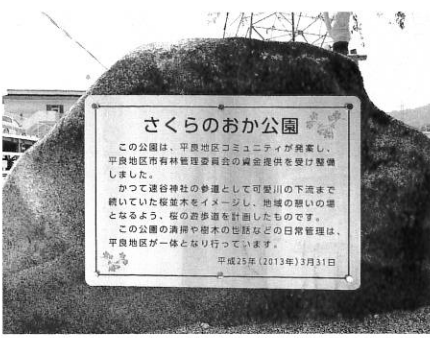 さくらのおか公園
この公園は、平良地区コミュニティが発案し、
平良地区市有林管理委員会の資金提供を受け整備
しました。
かつて速谷神社の参道として可愛川の下流まで
続いていた桜並木をイメージし、地域の憩いの場
となるよう、桜の遊歩道を計画したものです。
この公園の清掃や樹木の世話などの日常管理は、
平良地区が一体となり行っています。
平成25年(2013年)3月31日